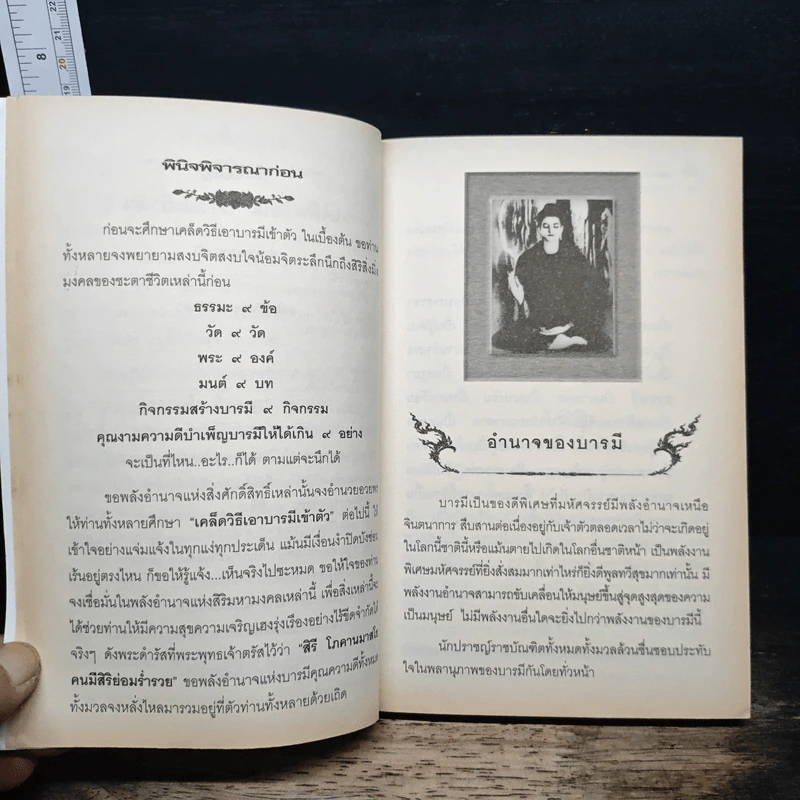 8
22
21
20
19
พินิจพิจารณาก่อน
ก่อนจะศึกษาเคล็ดวิธีเอาบารมีเข้าตัว ในเบื้องต้น ขอท่าน
ทั้งหลายจงพยายามสงบจิตสงบใจน้อมจิตระลึกนึกถึงสิริสิ่งมิ่ง
มงคลของชะตาชีวิตเหล่านี้ก่อน
ธรรมะ ๙ ข้อ
วัด ๙ วัด
พระ ๙ องค์
มนต์ ๙ บท
กิจกรรมสร้างบารมี ๙ กิจกรรม
คุณงามความดีบำเพ็ญบารมีให้ได้เกิน ๙ อย่าง
จะเป็นที่ไหน..อะไร..ก็ได้ ตามแต่จะนึกได้
ขอพลังอำนาจแห่งสิ่งศักดิ์สิทธิ์เหล่านั้นจงอำนวยอวยพร
ให้ท่านทั้งหลายศึกษา "เคล็ดวิธีเอาบารมีเข้าตัว" ต่อไปนี้
เข้าใจอย่างแจ่มแจ้งในทุกแง่ทุกประเด็น แม้นมีเงื่อนงำปิดบังซ่อน
เร้นอยู่ตรงไหน ก็ขอให้รู้แจ้ง...เห็นจริงไปซะหมด ขอให้ใจของท่าน
จงเชื่อมั่นในพลังอำนาจแห่งสิริมหามงคลเหล่านี้ เพื่อสิ่งเหล่านี้จะ
ได้ช่วยท่านให้มีความสุขความเจริญเฮงรุ่งเรืองอย่างไร้ขีดจำกัดได้
จริงๆ ดังพระดำรัสที่พระพุทธเจ้าตรัสไว้ว่า "สิรี โภคานมาสโย
คนมีสิริย่อมร่ำรวย" ขอพลังอำนาจแห่งบารมีคุณความดีทั้งหมด
ทั้งมวลจงหลั่งไหลมารวมอยู่ที่ตัวท่านทั้งหลายด้วยเถิด
อำนาจของบารมี
บารมีเป็นของดีพิเศษที่มหัศจรรย์มีพลังอำนาจเหนือ
จินตนาการ สืบสานต่อเนื่องอยู่กับเจ้าตัวตลอดเวลาไม่ว่าจะเกิดอยู่
ในโลกนี้ชาตินี้หรือแม้นตายไปเกิดในโลกอื่นชาติหน้า เป็นพลังงาน
พิเศษมหัศจรรย์ที่ยิ่งสั่งสมมากเท่าไหร่ก็ยิ่งดีพูลทวีสุขมากเท่านั้น มี
พลังงานอำนาจสามารถขับเคลื่อนให้มนุษย์ขึ้นสู่จุดสูงสุดของความ
เป็นมนุษย์ ไม่มีพลังงานอื่นใดจะยิ่งไปกว่าพลังงานของบารมีนี้
นักปราชญ์ราชบัณฑิตทั้งหมดทั้งมวลล้วนชื่นชอบประทับ
ใจในพลานุภาพของบารมีกันโดยทั่วหน้า